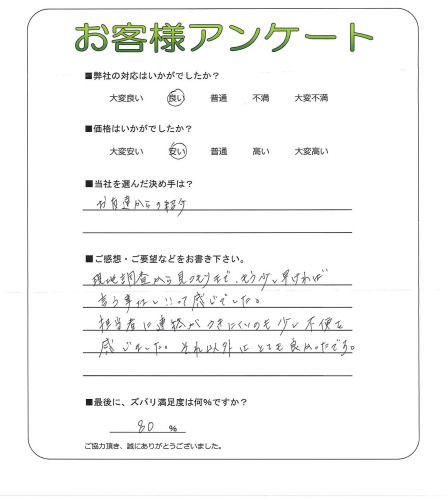 お客様アンケート
■弊社の対応はいかがでしたか？
大変良い 良い 普通 不満 大変不満
■価格はいかがでしたか？
大変安い 安い 普通 高い 大変高い
■当社を選んだ決め手は？
お友達からの紹介
■ご感想・ご要望などをお書き下さい。
現地調査から見つもりまで、もう少し早ければ
言う事なし!!って感じでした。
担当者に連絡がつきにくいのも少し不便を
感じました。それ以外はとても良かったです。
■最後に、ズバリ満足度は何%ですか？
80 %
ご協力頂き、誠にありがとうございました。